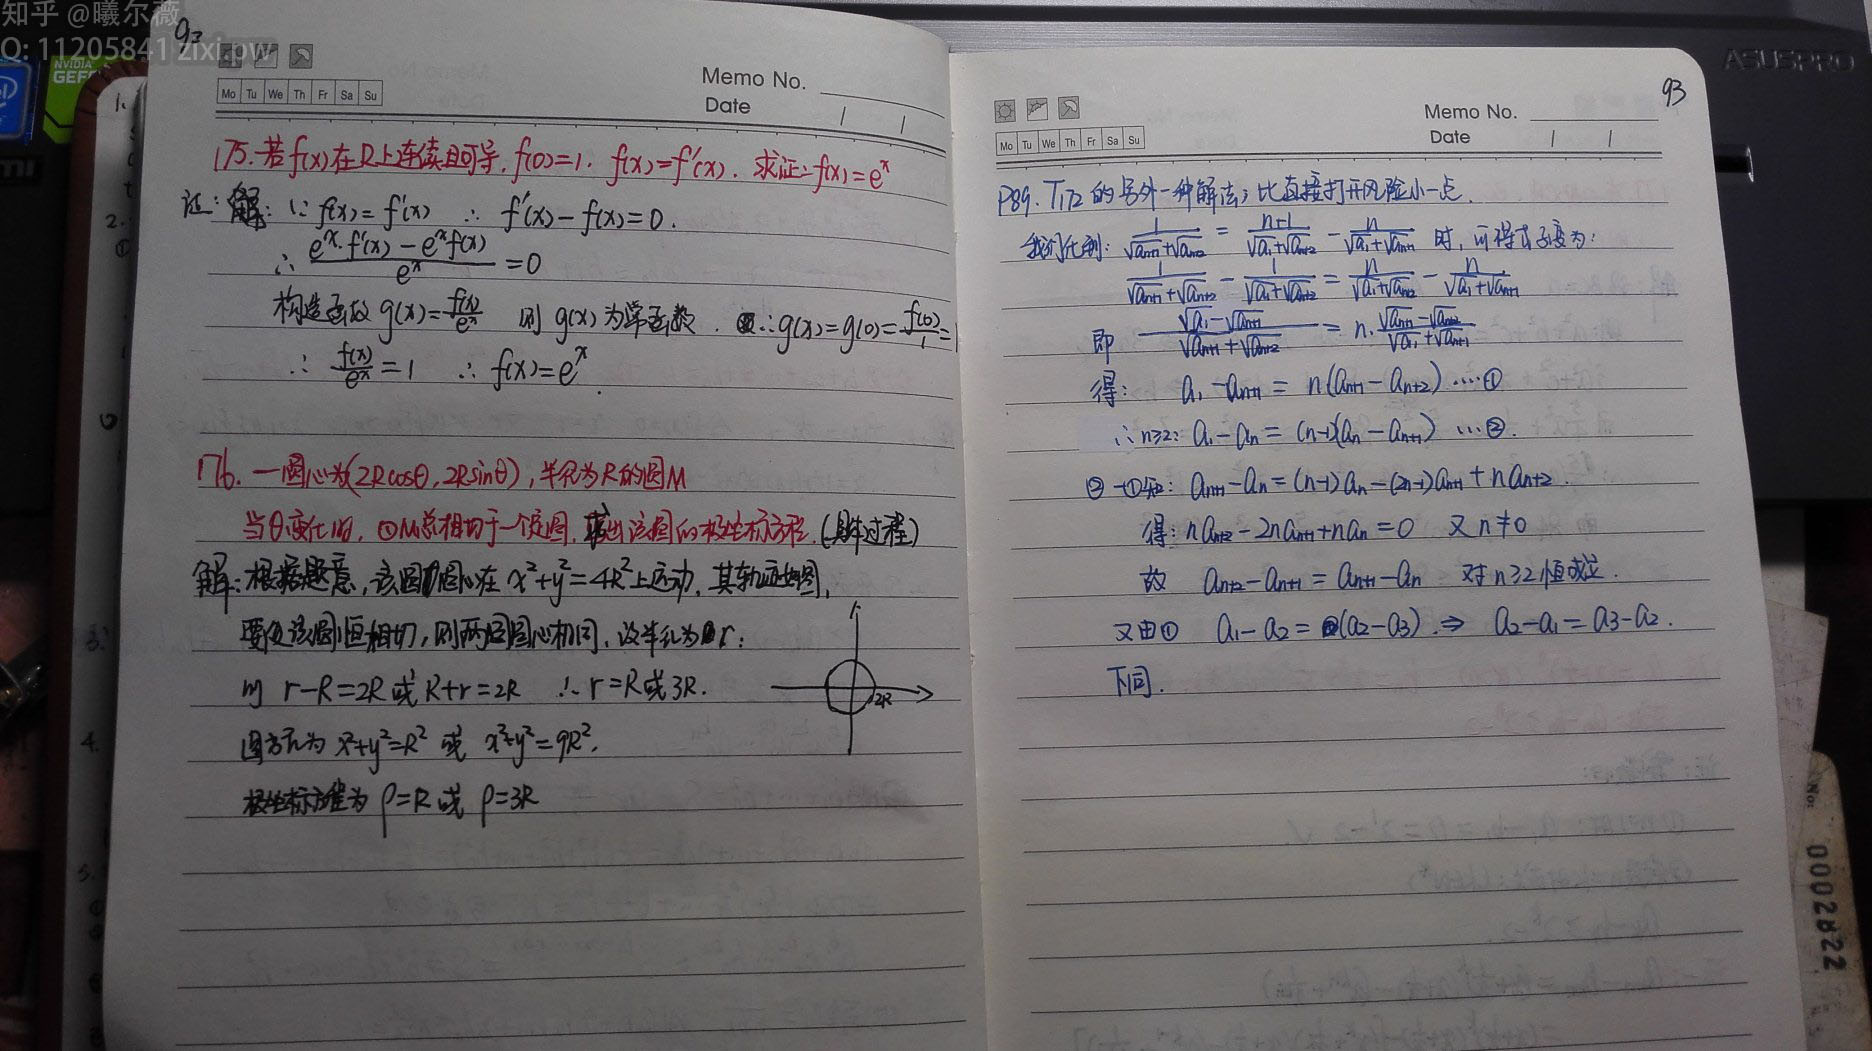 知乎 @曦尔薇
Q: 11205841 zixi.pw
93
Mo Tu We Th Fr Sa Su
Memo No.
Date
175. 若f(x)在R上连续且可导, f(0)=1. f(x)=f'(x). 求证: f(x)=e^x
证: 解: ∵ f(x)=f'(x) ∴ f'(x)-f(x)=0.
∴ (e^x·f'(x)-e^x f(x))/e^x =0
构造函数 g(x)=f(x)/e^x 则 g(x)为常函数. ∴g(x)=g(0)=f(0)/1=1
∴ f(x)/e^x=1 ∴ f(x)=e^x.
176. 一圆心为(2Rcosθ, 2Rsinθ), 半径为R的圆M
当θ变化时, ⊙M总相切于一个定圆, 求出该圆的极坐标方程. (具体过程)
解: 根据题意, 该圆圆心在 x²+y²=4R²上运动. 其轨迹如图,
要使该圆恒相切, 则两圆圆心相同, 设半径为r:
则 r-R=2R 或 R+r=2R ∴ r=R或3R.
2R
圆方程为 x²+y²=R² 或 x²+y²=9R².
极坐标方程为 ρ=R 或 ρ=3R
93
Memo No.
Date
Mo Tu We Th Fr Sa Su
P89. T172 的另外一种解法; 比直接打开风险小一点.
我们化到: 1/(√a_{n+1}+√a_{n+2}) = (n+1)/(√a_1+√a_{n+2}) - n/(√a_1+√a_{n+1}) 时, 可得其变为:
1/(√a_{n+1}+√a_{n+2}) - 1/(√a_1+√a_{n+2}) = n/(√a_1+√a_{n+2}) - n/(√a_1+√a_{n+1})
即 (√a_1-√a_{n+1})/(√a_{n+1}+√a_{n+2}) = n·(√a_{n+1}-√a_{n+2})/(√a_1+√a_{n+1})
得: a_1-a_{n+1} = n(a_{n+1}-a_{n+2}) ····①
∴n≥2: a_1-a_n = (n-1)(a_n-a_{n+1}) ···②.
②-①知: a_{n+1}-a_n=(n-1)a_n-(2n-1)a_{n+1}+na_{n+2}.
得: na_{n+2}-2na_{n+1}+na_n=0 又n≠0
故 a_{n+2}-a_{n+1} = a_{n+1}-a_n 对n≥2恒成立.
又由① a_1-a_2=(a_2-a_3). ⇒ a_2-a_1=a_3-a_2.
下同.
ASUSPRO
NVIDIA
No:
0002822
1.
2.
①
3.
4.
5.